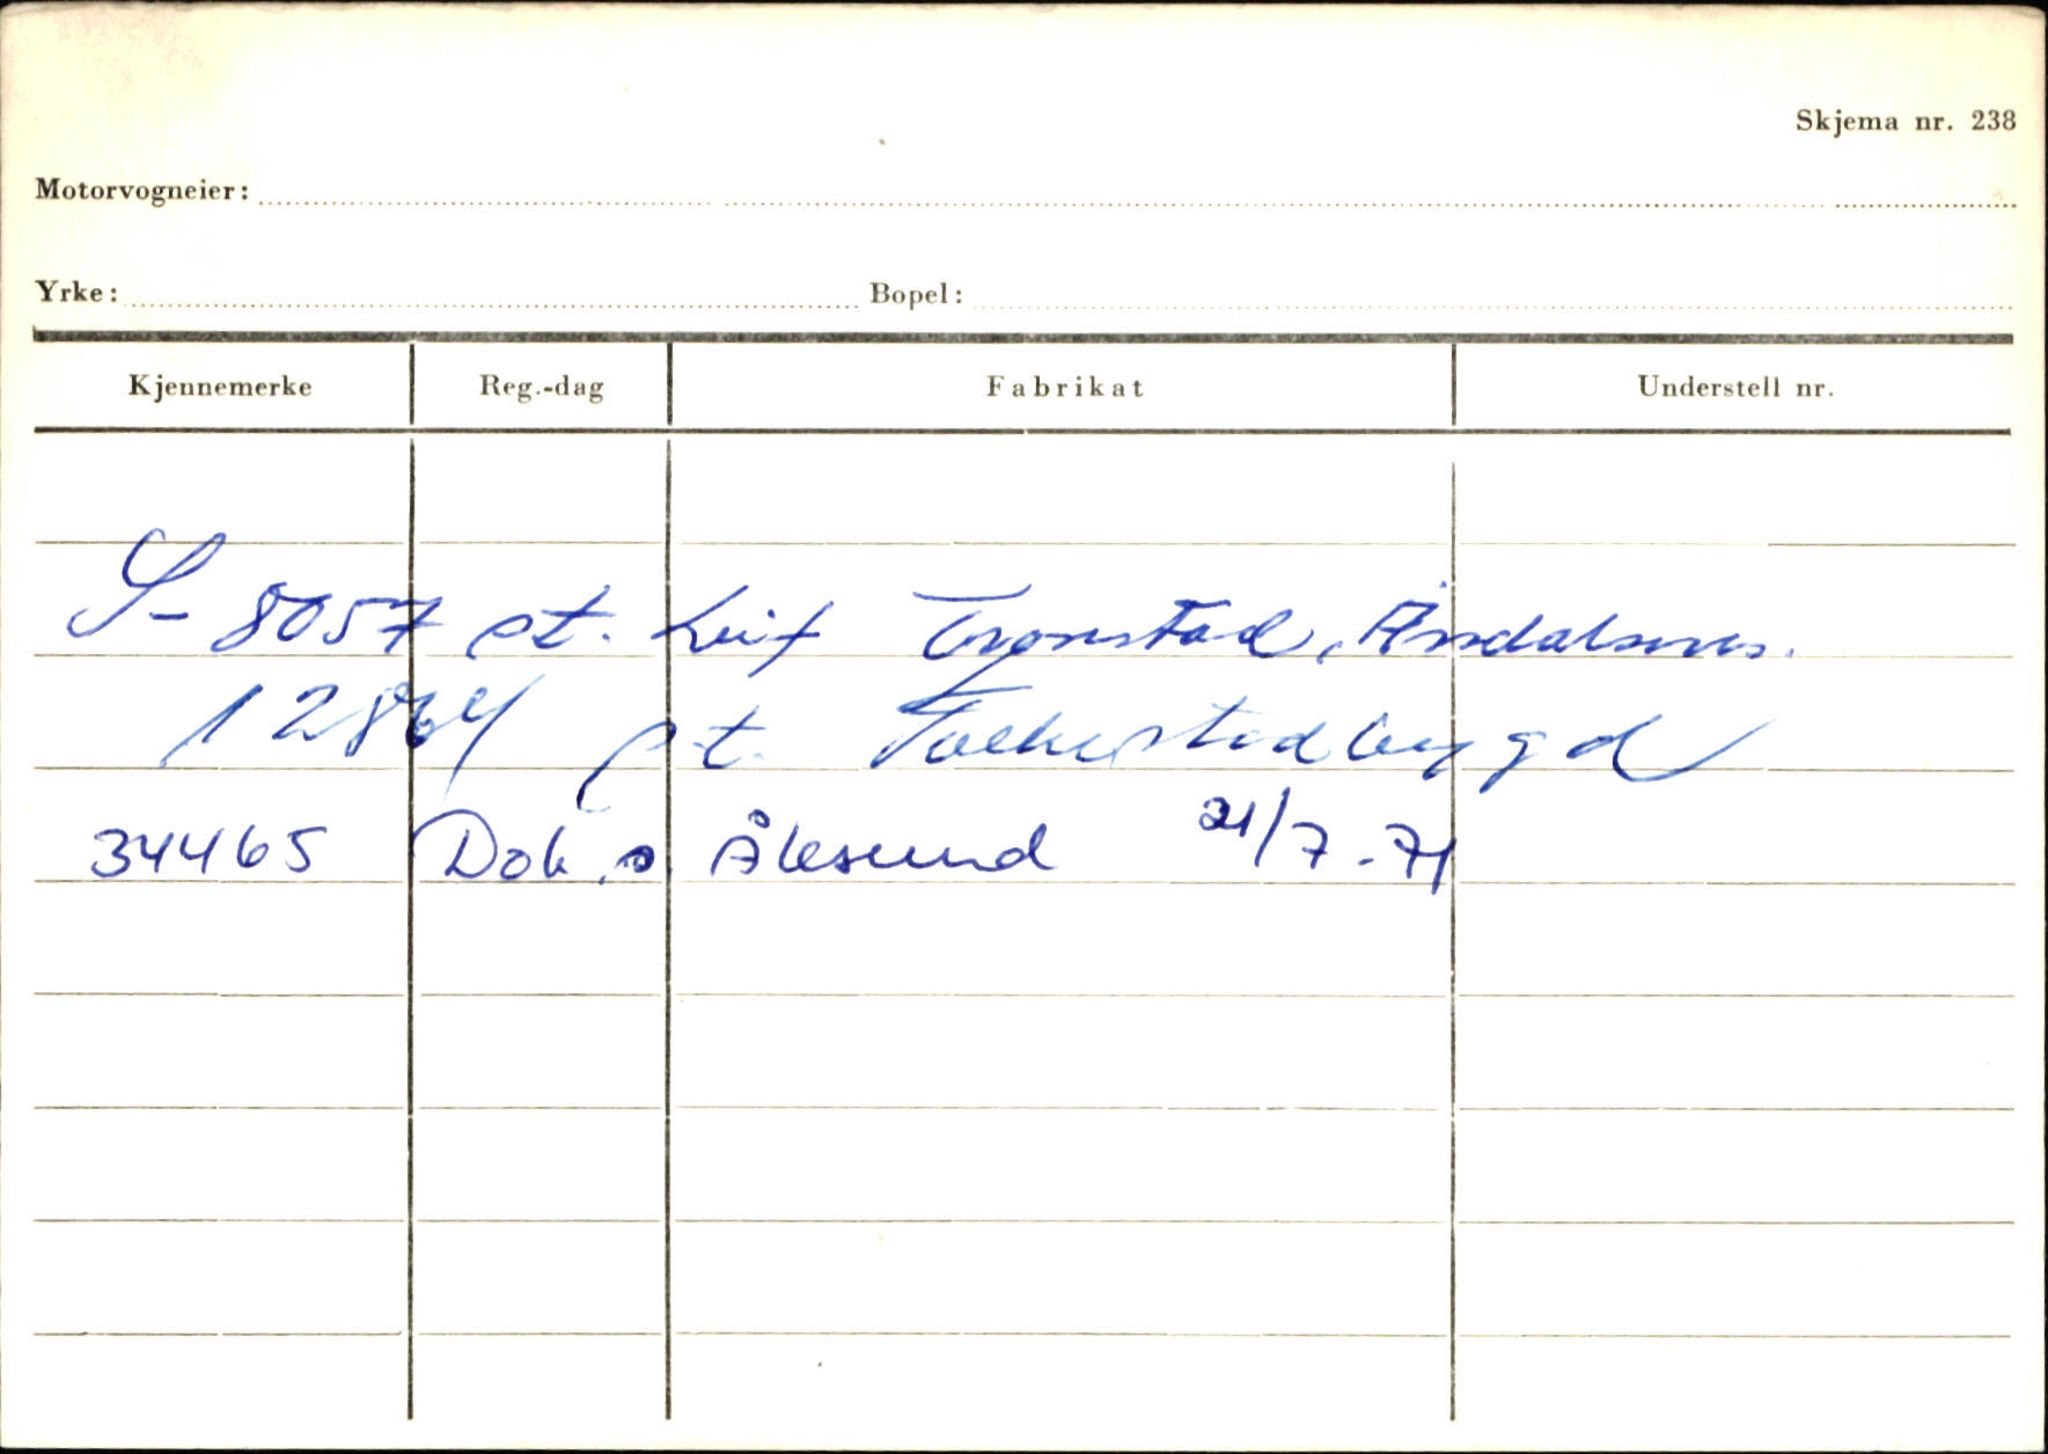 Skjema nr. 238
Motorvogneier:
Yrke: Bopel:
Kjennemerke Reg.-dag Fabrikat Understell nr.
S-8057 pt. Leif Tronstad, Åndalsnes.
12864 p.t. Folkestadbygd
34465 Dok. s. Ålesund 21/7-71